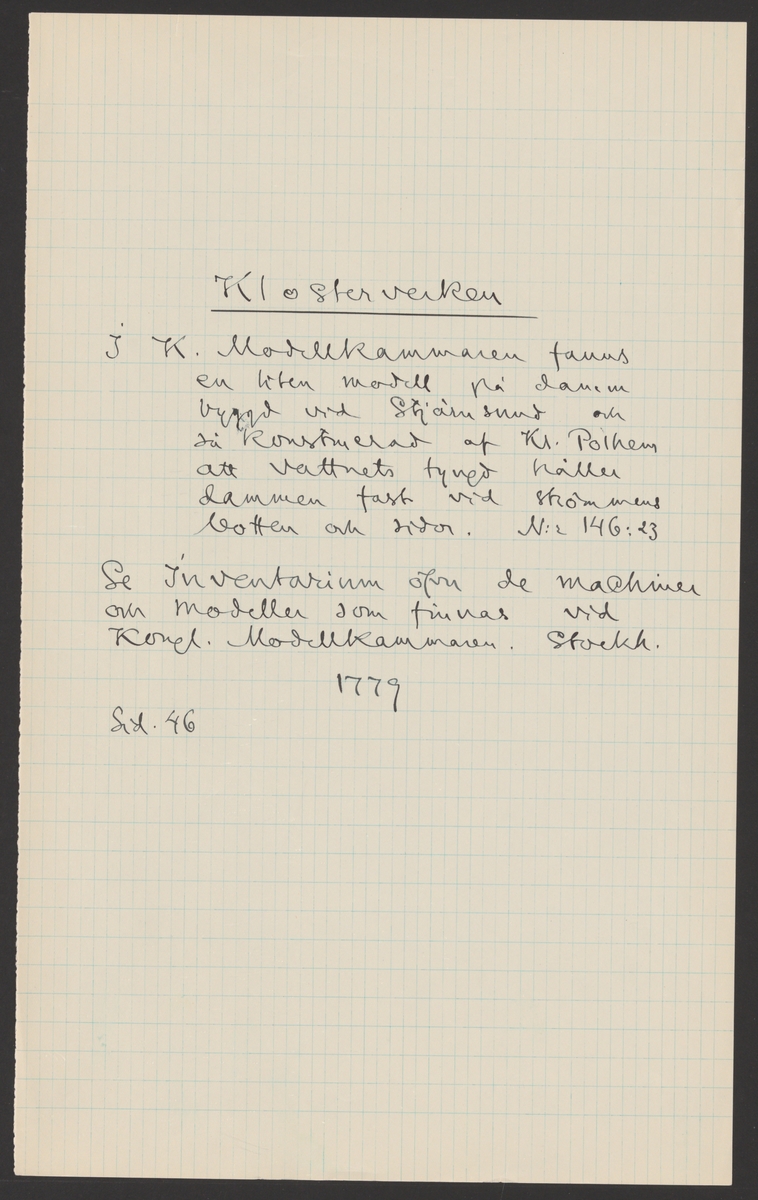 Klosterverken
I K. Modellkammaren fanns
en liten modell på damm
byggd vid Stjärnsund och
så konstruerad af Kr. Polhem
att vattnets tyngd håller
dammen fast vid strömmens
botten och sidor. N:r 146:23
Se Inventarium öfver de machiner
och modeller som finnas vid
Kongl. Modellkammaren. Stockh.
1779
Sid. 46